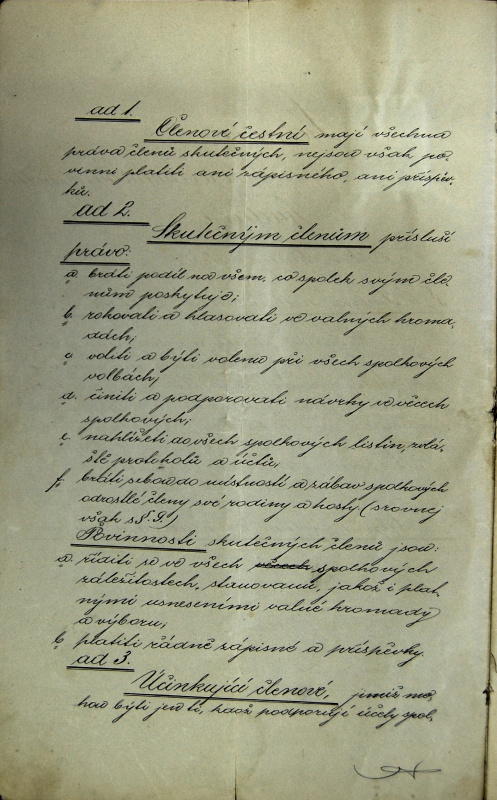 ad 1.
Členové čestní mají všechna
práva členů skutečných, nejsou však po-
vinni platiti ani zápisného, ani příspěv-
ků.
ad 2.
Skutečným členům přísluší
právo:
a. bráti podíl na všem, co spolek svým čle-
nům poskytuje;
b. rokovati a hlasovati ve valných hroma-
dách;
c. voliti a býti volenu při všech spolkových
volbách;
d. činiti a podporovati návrhy ve věcech
spolkových;
e. nahlížeti do všech spolkových listin, zvlá-
ště protokolů a účtů;
f. bráti sebou do místností a zábav spolkových
odrostlé členy své rodiny a hosty (srovnej
však s §. 9.)
Povinnosti skutečných členů jsou:
a. říditi se ve všech věcech spolkových
záležitostech, stanovami, jakož i plat-
nými usneseními valné hromady
a výboru;
b. platiti řádně zápisné a příspěvky.
ad 3.
Účinkující členové, jimiž mo-
hou býti jen ti, kdož podporují účely spol-